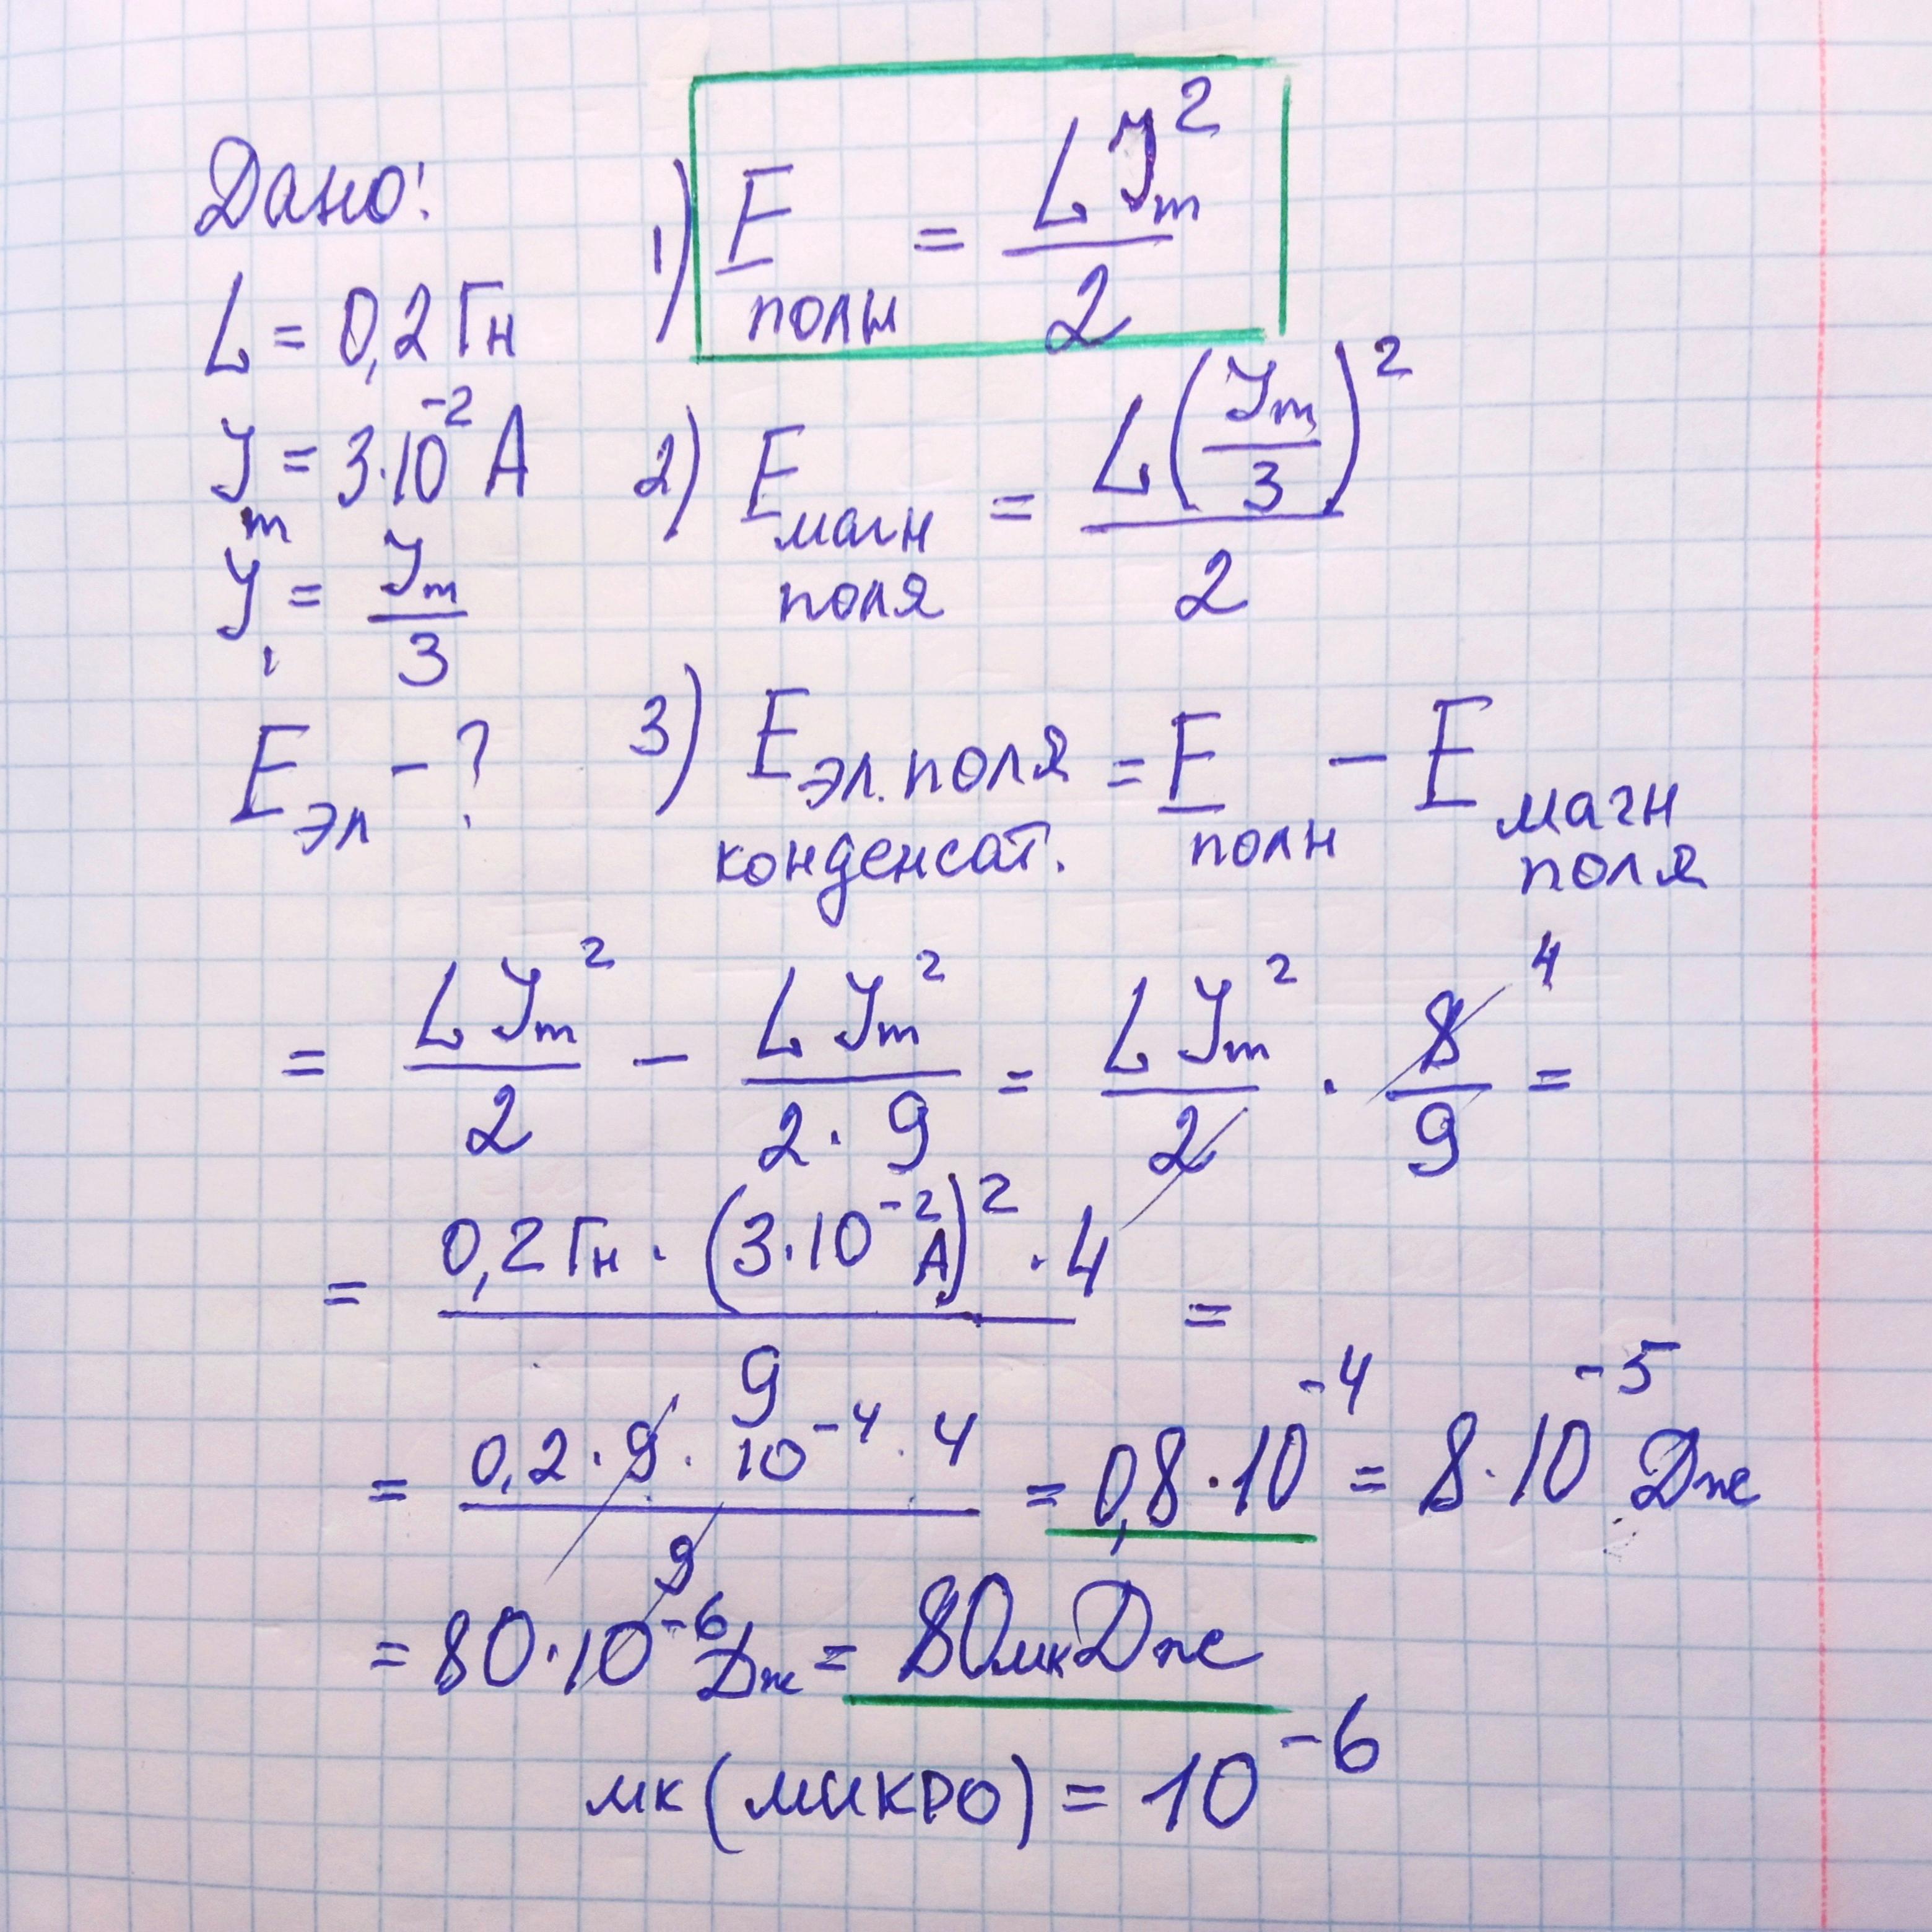 Дано:
L = 0,2 Гн
Jm = 3·10⁻² А
J₁ = Jm/3
Eэл – ?
1) Eполн = LJm²/2
2) Eмагн поля = L(Jm/3)²/2
3) Eэл. поля конденсат. = Eполн – Eмагн поля
= LJm²/2 – LJm²/(2·9) = LJm²/2 · 8/9 = 4
= 0,2 Гн · (3·10⁻² А)² · 4 / 9 =
= 0,2 · 9 · 10⁻⁴ · 4 / 9 = 0,8·10⁻⁴ = 8·10⁻⁵ Дж
= 80·10⁻⁶ Дж = 80мкДж
мк (микро) = 10⁻⁶